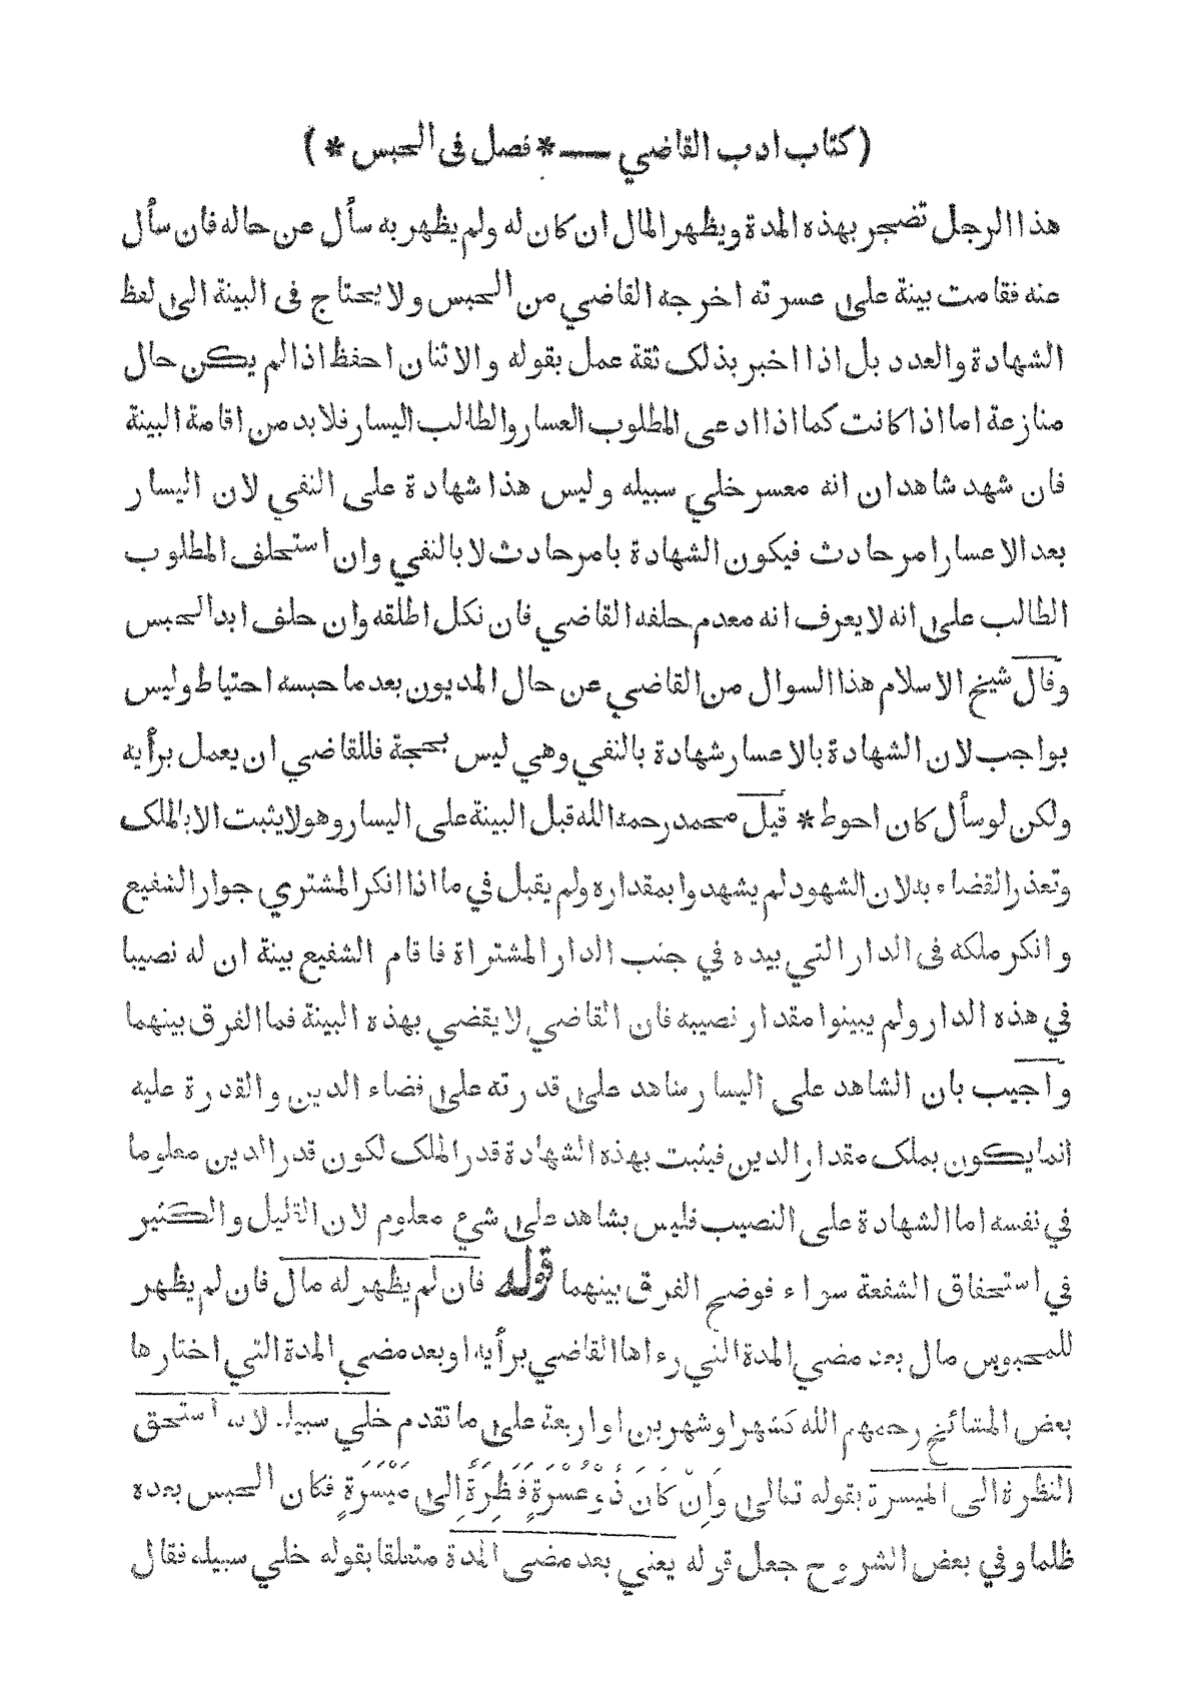 (كتاب ادب القاضي — * فصل فى الحبس *)
هذا الرجل تضجر بهذه المدة ويظهر المال ان كان له ولم يظهر به سأل عن حاله فان سأل
عنه فقامت بينة على عسرته اخرجه القاضي من الحبس ولا يحتاج فى البينة الى لفظ
الشهادة والعدد بل اذا اخبر بذلك ثقة عمل بقوله والاثنان احفظ اذا لم يكن حال
منازعة اما اذا كانت كما اذا ادعى المطلوب العسار والطالب اليسار فلا بد من اقامة البينة
فان شهد شاهدان انه معسر خلي سبيله وليس هذا شهادة على النفي لان اليسار
بعد الاعسار امر حادث فيكون الشهادة بامر حادث لا بالنفي وان استحلف المطلوب
الطالب على انه لا يعرف انه معدم حلفه القاضي فان نكل اطلقه وان حلف ابد الحبس
وقال شيخ الاسلام هذا السوال من القاضي عن حال المديون بعد ما حبسه احتياط وليس
بواجب لان الشهادة بالاعسار شهادة بالنفي وهي ليس بحجة فللقاضي ان يعمل برأيه
ولكن لو سأل كان احوط * قيل محمد رحمه الله قبل البينة على اليسار وهو لا يثبت الا بالملك
وتعذر القضاء به لان الشهود لم يشهدوا بمقداره ولم يقبل في ما اذا انكر المشتري جوار الشفيع
وانكر ملكه فى الدار التي بيده في جنب الدار المشتراة فاقام الشفيع بينة ان له نصيبا
في هذه الدار ولم يبينوا مقدار نصيبه فان القاضي لا يقضي بهذه البينة فما الفرق بينهما
واجيب بان الشاهد على اليسار شاهد على قدرته على قضاء الدين والقدرة عليه
انما يكون بملك مقدار الدين فيثبت بهذه الشهادة قدر الملك لكون قدر الدين معلوما
في نفسه اما الشهادة على النصيب فليس بشاهد على شيء معلوم لان القليل والكثير
في استحقاق الشفعة سواء فوضح الفرق بينهما قوله فان لم يظهر له مال فان لم يظهر
للمحبوس مال بعد مضي المدة التي رءاها القاضي برأيه او بعد مضي المدة التي اختارها
بعض المشائخ رحمهم الله كشهر او شهرين او اربعة على ما تقدم خلي سبيله لانه استحق
النظرة الى الميسرة بقوله تعالى وَاِنْ كَانَ ذُوْ عُسْرَةٍ فَنَظِرَةٌ اِلٰى مَيْسَرَةٍ فكان الحبس بعده
ظلما وفي بعض الشروح جعل قوله يعني بعد مضى المدة متعلقا بقوله خلي سبيله فقال